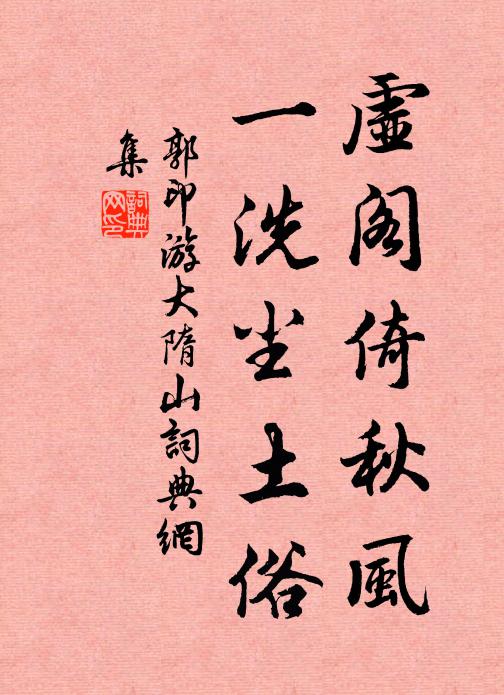 虛阁倚秋風
一洗尘土俗
郭印游大隋山詞典網
集
詞典網印